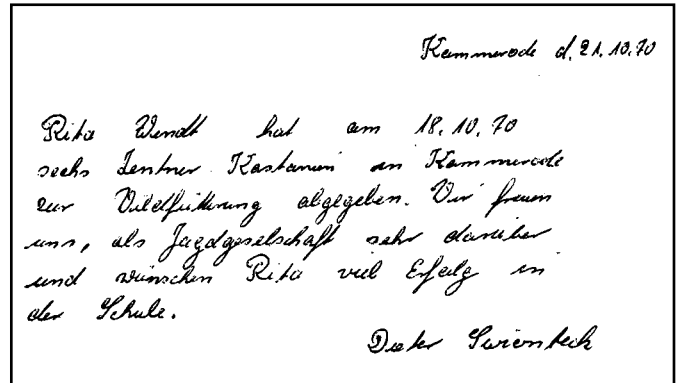 Kammerode d. 21.10.70
Rita Wendt hat am 18.10.70
sechs Zentner Kastanien in Kammerode
zur Wildfütterung abgegeben. Wir freuen
uns, als Jagdgeselschaft sehr darüber
und wünschen Rita viel Erfolg in
der Schule.
Dieter